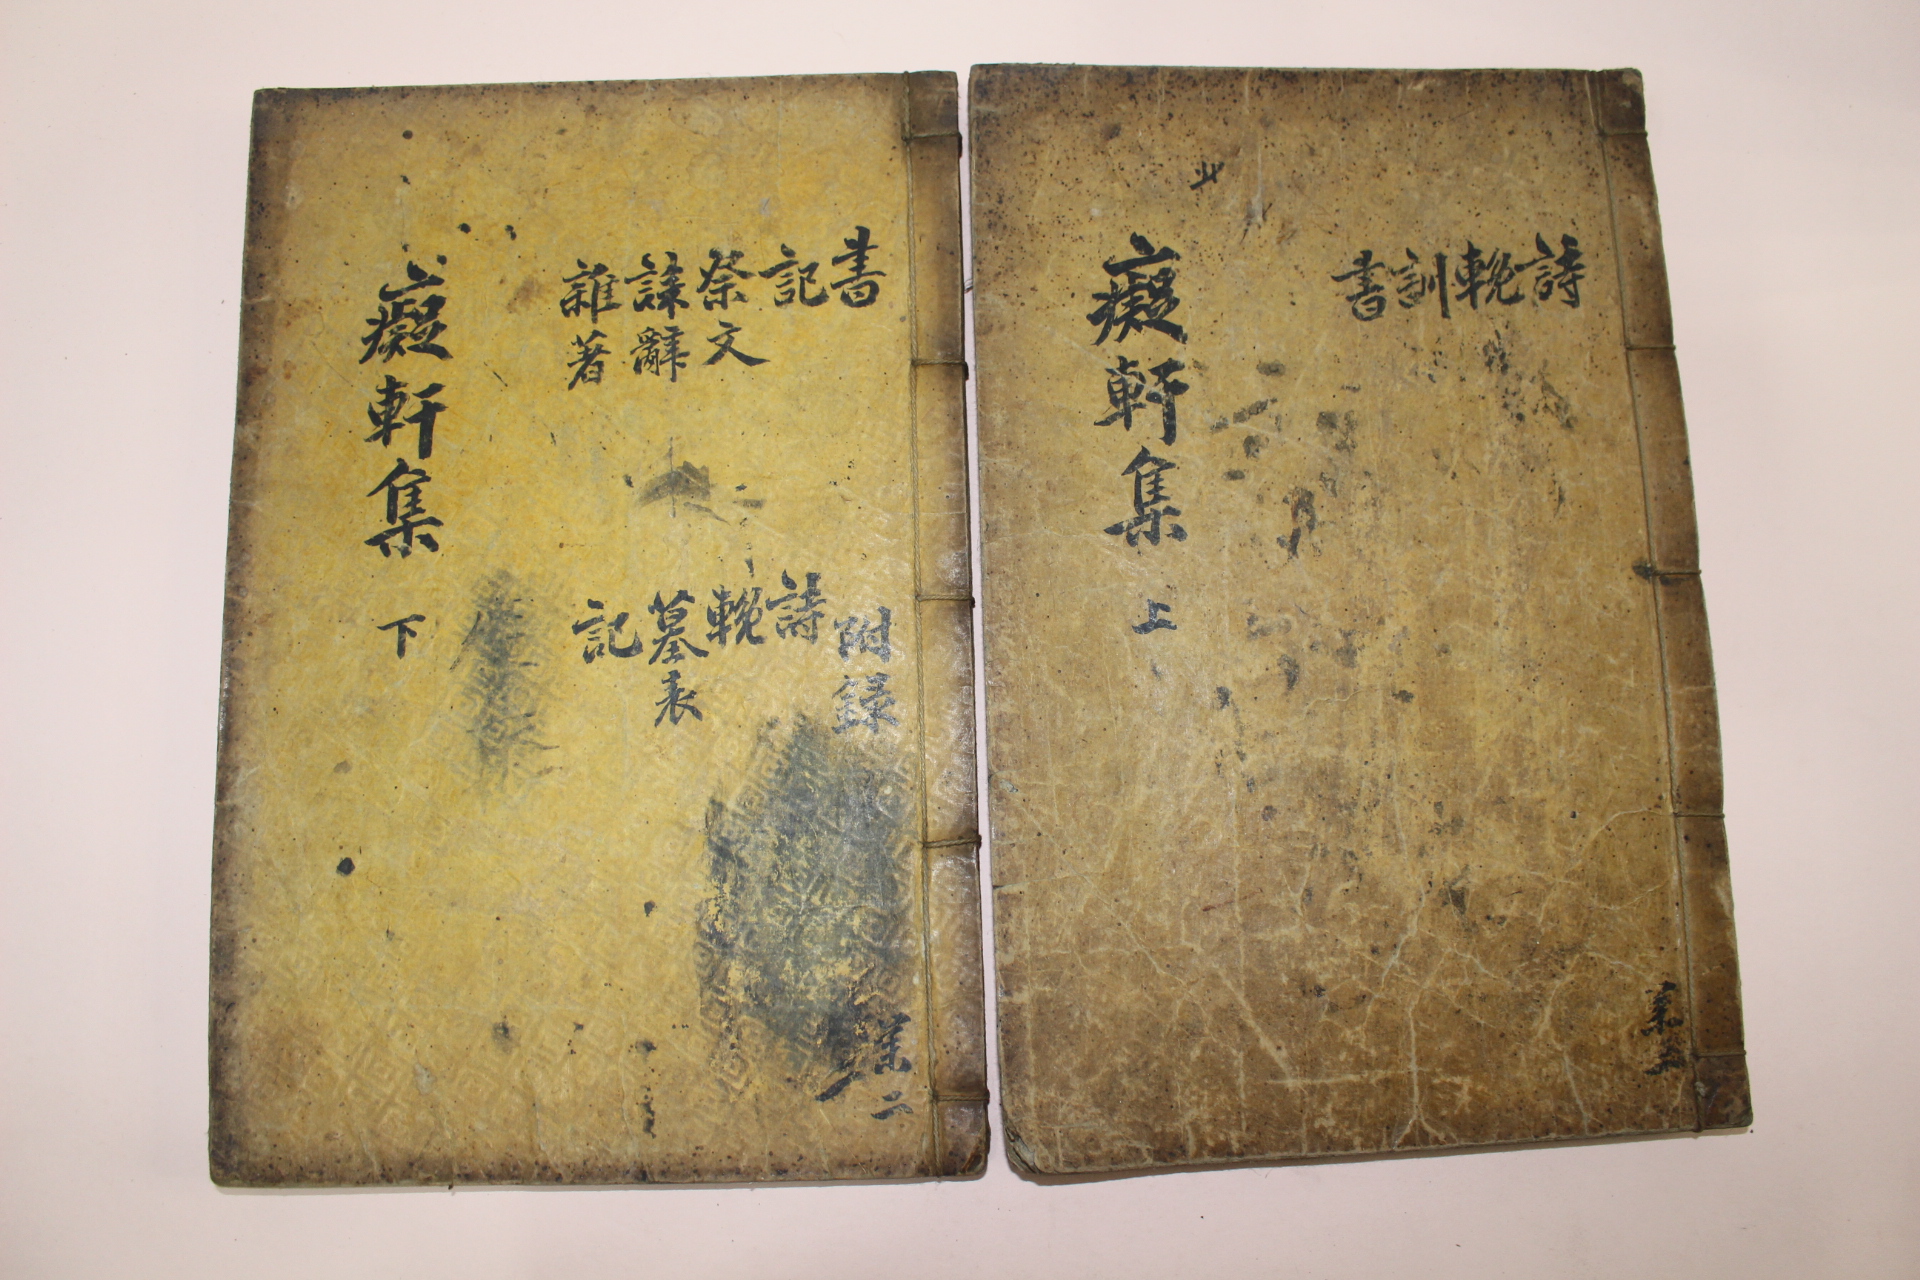 詩
輓
訓
書
癡軒集 上
書
記
祭文
誄辭
雜著
附録
詩
輓
墓表
記
癡軒集 下